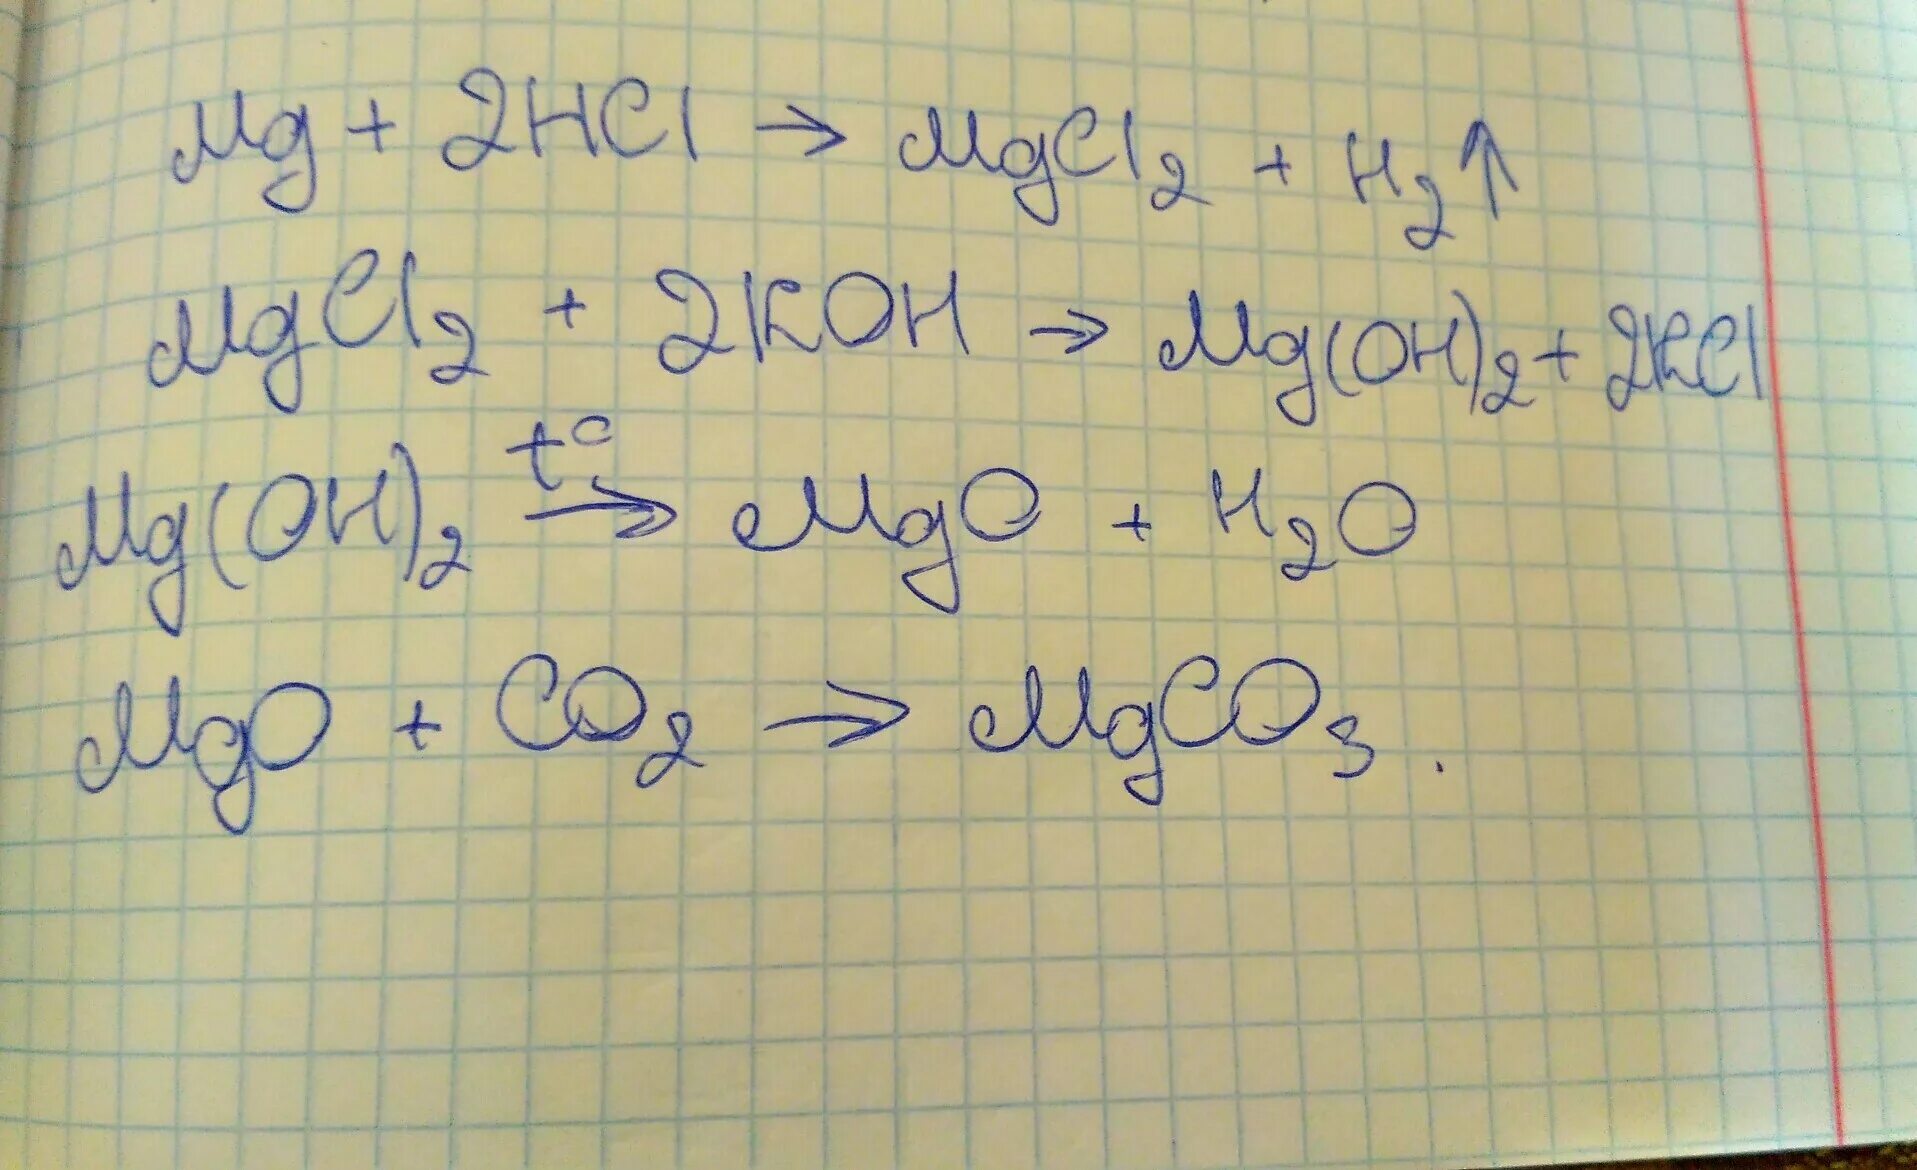 Mg + 2HCl → MgCl₂ + H₂↑
MgCl₂ + 2KOH → Mg(OH)₂ + 2KCl
Mg(OH)₂ t° → MgO + H₂O
MgO + CO₂ → MgCO₃.